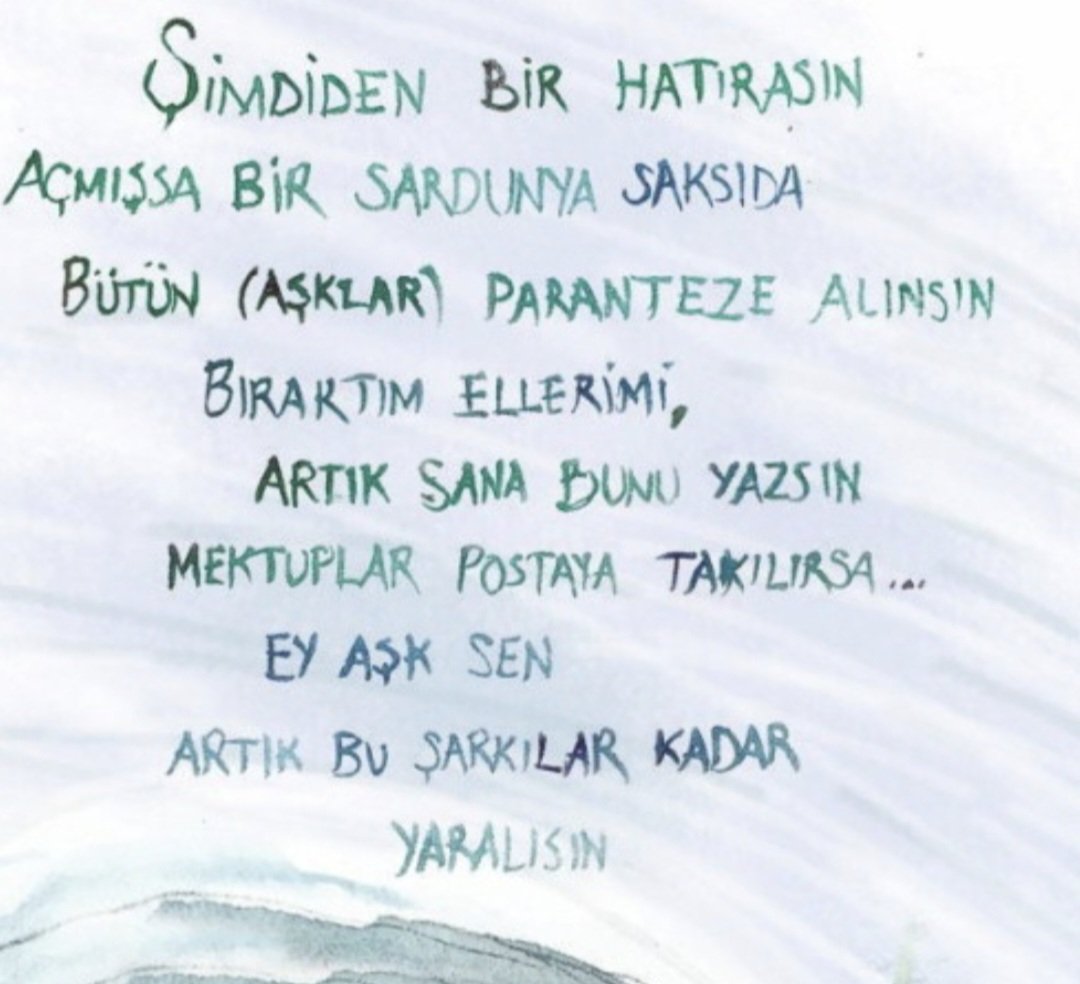 ŞİMDİDEN BİR HATIRASIN
AÇMIŞSA BİR SARDUNYA SAKSIDA
BÜTÜN (AŞKLAR) PARANTEZE ALINSIN
BIRAKTIM ELLERİMİ,
ARTIK SANA BUNU YAZSIN
MEKTUPLAR POSTAYA TAKILIRSA...
EY AŞK SEN
ARTIK BU ŞARKILAR KADAR
YARALISIN